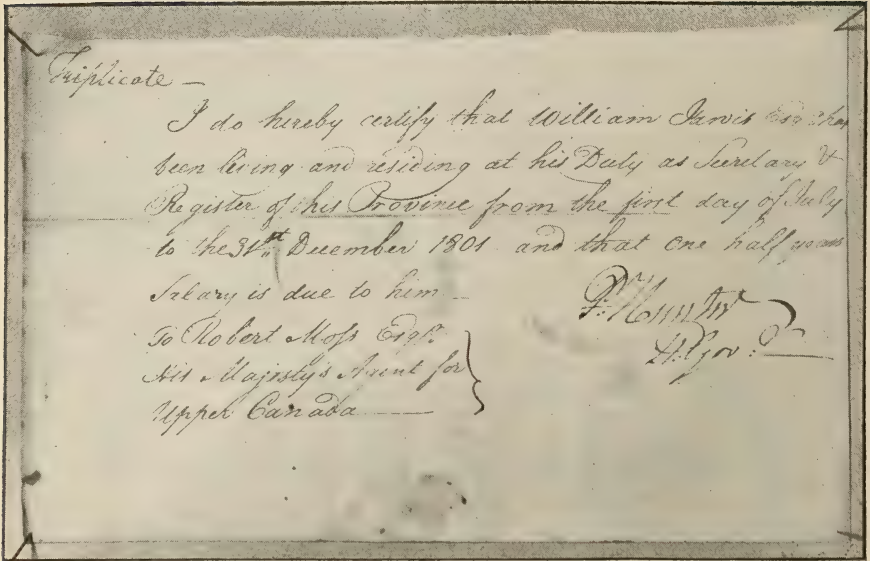 Triplicate —
I do hereby certify that William Jarvis Esqr. has
been living and residing at his Duty as Secretary &
Register of this Province from the first day of July
to the 31st December 1801 and that one half years
Salary is due to him —
P. Hunter
Lt. Gov.
To Robert Moss Esqr.
His Majesty's Agent for
Upper Canada —